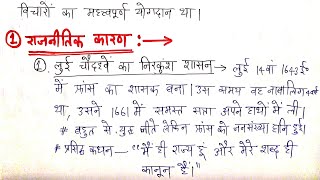 विचारों का महत्वपूर्ण योगदान था।
① राजनीतिक कारण :→
①. लुई चौदहवें का निरंकुश शासन → लुई 14वां 1643 ई०
में फ्रांस का शासक बना। उस समय वह नाबालिग
था, उसने 1661 में समस्त सत्ता अपने हाथों में ली।
# बहुत से युद्ध जीते लेकिन फ्रांस को जनसंख्या हानि हुई।
# प्रसिद्ध कथन — "मैं ही राज्य हूं और मेरे शब्द ही
कानून हैं।"